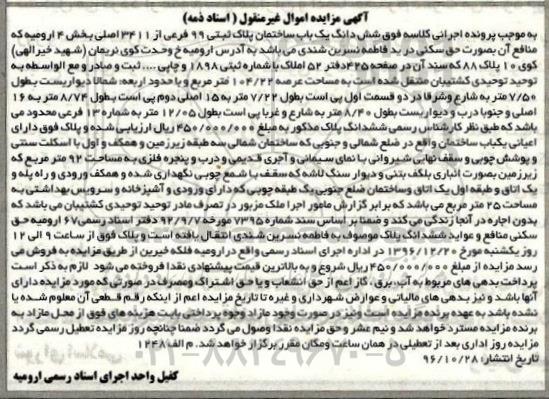 آگهی مزایده اموال غیرمنقول ( اسناد ذمه)
به موجب پرونده اجرائی کلاسه فوق شش دانگ یک باب ساختمان پلاک ثبتی ۹۹ فرعی از ۳۴۱۱ اصلی بخش ۴ ارومیه که
منافع آن بصورت حق سکنی در ید فاطمه نسرین شندی می باشد به آدرس ارومیه خ وحدت کوی نریمان (شهید خیرالهی)
کوی ۱۰ پلاک ۸۸ که سند آن در صفحه ۴۲۵ دفتر ۵۲ املاک با شماره ثبتی ۱۸۹۸ و چاپی .... ثبت و صادر و مع الواسطه به
توحید توحیدی کشتیبان منتقل شده است به مساحت عرصه ۱۰۴/۲۲ متر مربع و با حدود اربعه: شمالا دیواریست بطول
۷/۵۰ متر به شارع وشرقا در دو قسمت اول پی است بطول ۷/۲۲ متر به ۱۵ اصلی دوم پی است بطول ۸/۷۴ متر به ۱۶
اصلی و جنوبا درب و دیواریست بطول ۸/۴۰ متر به شارع و غربا پی است بطول ۱۲/۰۵ متر به شماره ۱۳ فرعی محدود می
باشد که طبق نظر کارشناس رسمی ششدانگ پلاک مذکور به مبلغ ۴۵۰/۰۰۰/۰۰۰ ریال ارزیابی شده و پلاک فوق دارای
اعیانی یکباب ساختمان واقع در ضلع شمالی و جنوبی که ساختمان شمالی سه طبقه زیرزمین و همکف و اول با اسکلت سنتی
و پوشش چوبی و سقف نهایی شیروانی با نمای سیمانی و آجری قدیمی و درب و پنجره فلزی به مساحت ۹۲ متر مربع که
زیرزمین بصورت انباری بلکف بتنی و دیوار سنگ لاشه که سقف با شمع چوبی نگهداری شده و همکف ورودی و راه پله و
یک اتاق و طبقه اول یک اتاق وساختمان ضلع جنوبی یک طبقه چوبی که دارای ورودی و آشپزخانه و سرویس بهداشتی به
مساحت ۲۵ متر مربع می باشد که برابر گزارش مامور اجرا ملک مزبور در تصرف مادر توحید توحیدی کشتیبان می باشد که
بدون اجاره در آنجا زندگی می کند و ضمنا بر اساس سند شماره ۷۳۹۵ مورخه ۹۲/۹/۷ دفتر اسناد رسمی ۶۷ ارومیه حق
سکنی منافع و عواید ششدانگ پلاک موصوف به فاطمه نسرین شندی انتقال یافته است و پلاک فوق از ساعت ۹ الی ۱۲
روز یکشنبه مورخ ۱۳۹۶/۱۲/۲۰ در اداره اجرای اسناد رسمی واقع در ارومیه فلکه خیرین از طریق مزایده به فروش می
رسد مزایده از مبلغ ۴۵۰/۰۰۰/۰۰۰ ریال شروع و به بالاترین قیمت پیشنهادی نقدا فروخته می شود لازم به ذکر است
پرداخت بدهی های مربوط به آب، برق، گاز اعم از حق انشعاب و یا حق اشتراک و مصرف در صورتی که مورد مزایده دارای
آنها باشد و نیز بدهی های مالیاتی و عوارض شهرداری و غیره تا تاریخ مزایده اعم از اینکه رقم قطعی آن معلوم شده یا
نشده باشد به عهده برنده مزایده است ونیز در صورت وجود مازاد وجوه پرداختی بابت هزینه های فوق از محل مازاد به
برنده مزایده مسترد خواهد شد و نیم عشر و حق مزایده نقدا وصول می گردد ضمنا چنانچه روز مزایده تعطیل رسمی گردد
مزایده روز اداری بعد از تعطیلی در همان ساعت ومکان مقرر برگزار خواهد شد. م الف ۱۲۴۸
تاریخ انتشار: ۹۶/۱۰/۲۸
کفیل واحد اجرای اسناد رسمی ارومیه
۰۲۱-۸۸۳۴۹۶۷۰-۵